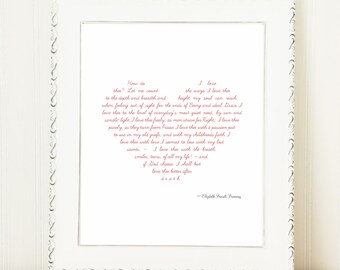 How do I love
thee? Let me count the ways. I love thee
to the depth and breadth and height my soul can reach,
when feeling out of sight for the ends of Being and ideal Grace. I
love thee to the level of everyday's most quiet need, by sun and
candle light. I love thee freely, as men strive for Right; I love thee
purely, as they turn from Praise. I love thee with a passion put
to use in my old griefs, and with my childhood's faith. I
love thee with love I seemed to lose with my lost
saints, - I love thee with the breath,
smiles, tears, of all my life! - and
if God choose, I shall but
love thee better after
death
— Elizabeth Barrett Browning